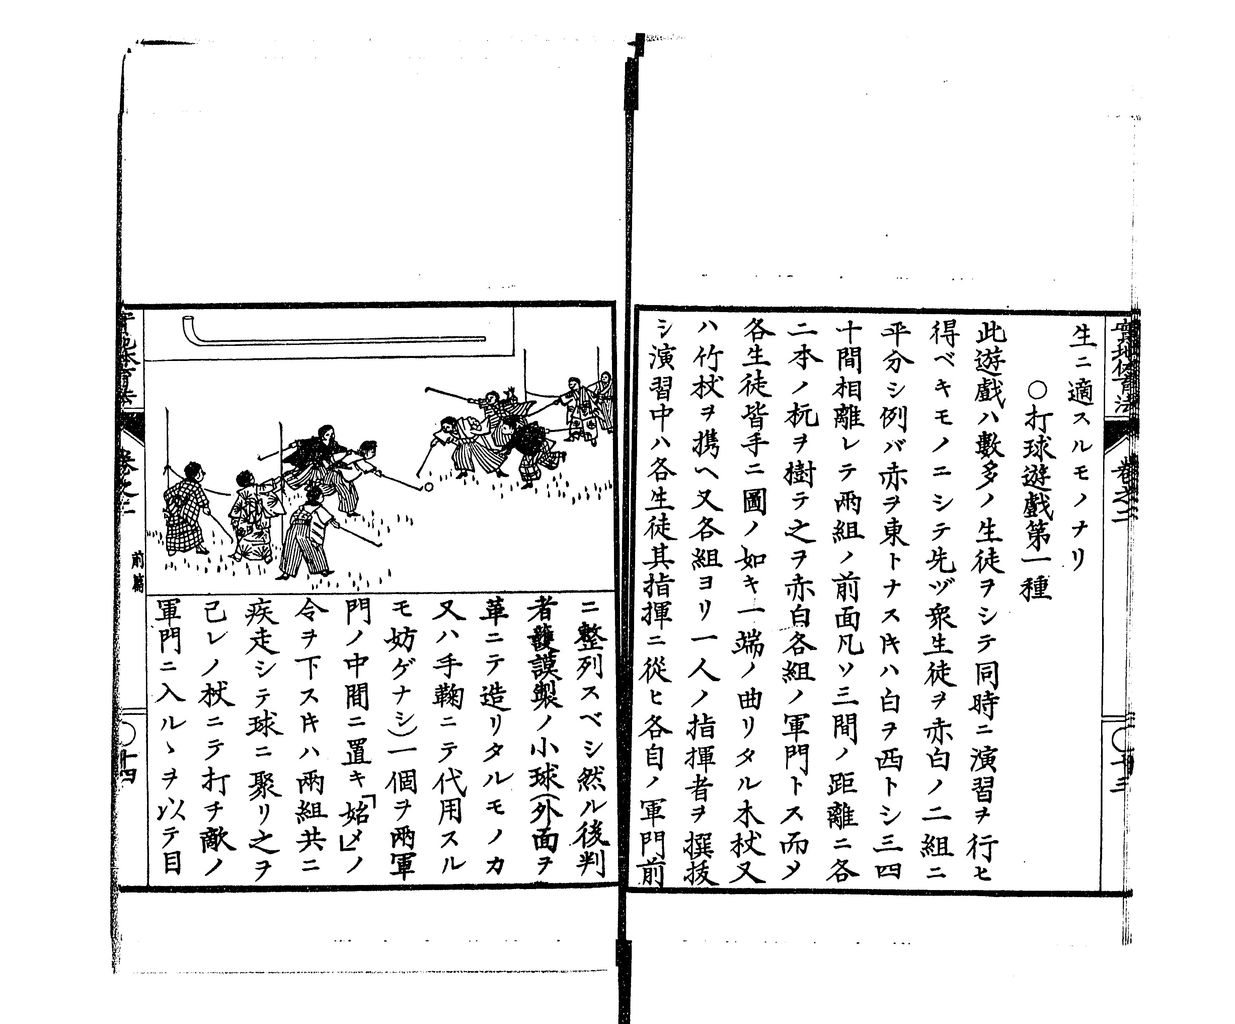 實地体育法
卷之二
十三
生ニ適スルモノナリ
○打球遊戲第一種
此遊戲ハ數多ノ生徒ヲシテ同時ニ演習ヲ行ヒ
得ベキモノニシテ先ヅ衆生徒ヲ赤白ノ二組ニ
平分シ例バ赤ヲ東トナスキハ白ヲ西トシ三四
十間相離レテ兩組ノ前面凡ソ三間ノ距離ニ各
二本ノ杭ヲ樹テ之ヲ赤白各組ノ軍門トス而メ
各生徒皆手ニ圖ノ如キ一端ノ曲リタル木杖又
ハ竹杖ヲ携ヘ又各組ヨリ一人ノ指揮者ヲ撰拔
シ演習中ハ各生徒其指揮ニ從ヒ各自ノ軍門前
ニ整列スベシ然ル後判
者護謨製ノ小球(外面ヲ
革ニテ造リタルモノカ
又ハ手鞠ニテ代用スル
モ妨ゲナシ)一個ヲ兩軍
門ノ中間ニ置キ「始メ」ノ
令ヲ下スキハ兩組共ニ
疾走シテ球ニ聚リ之ヲ
己レノ杖ニテ打チ敵ノ
軍門ニ入ルヽヲ以テ目
實地体育法
卷之二
前篇
十四